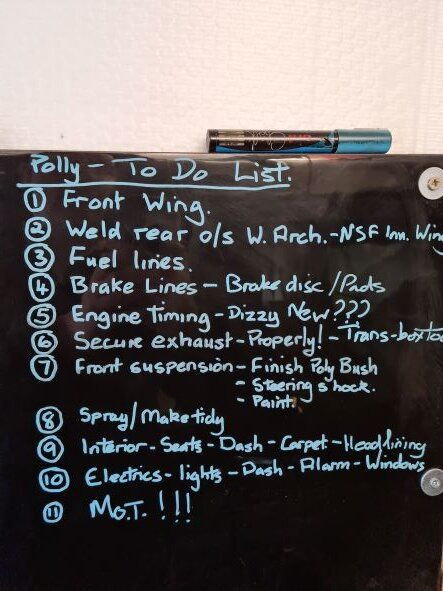 Polly - To Do List.
① Front Wing.
② Weld rear o/s W. Arch. - NSF Inn. Wing
③ Fuel lines.
④ Brake Lines - Brake disc / Pads
⑤ Engine timing - Dizzy New???
⑥ Secure exhaust - Properly! - Trans-box too
⑦ Front suspension - Finish Poly Bush
- Steering shock.
- Paint.
⑧ Spray / Make tidy
⑨ Interior - Seats - Dash - Carpet - Headlining
⑩ Electrics - lights - Dash - Alarm - Windows
⑪ M.O.T. !!!